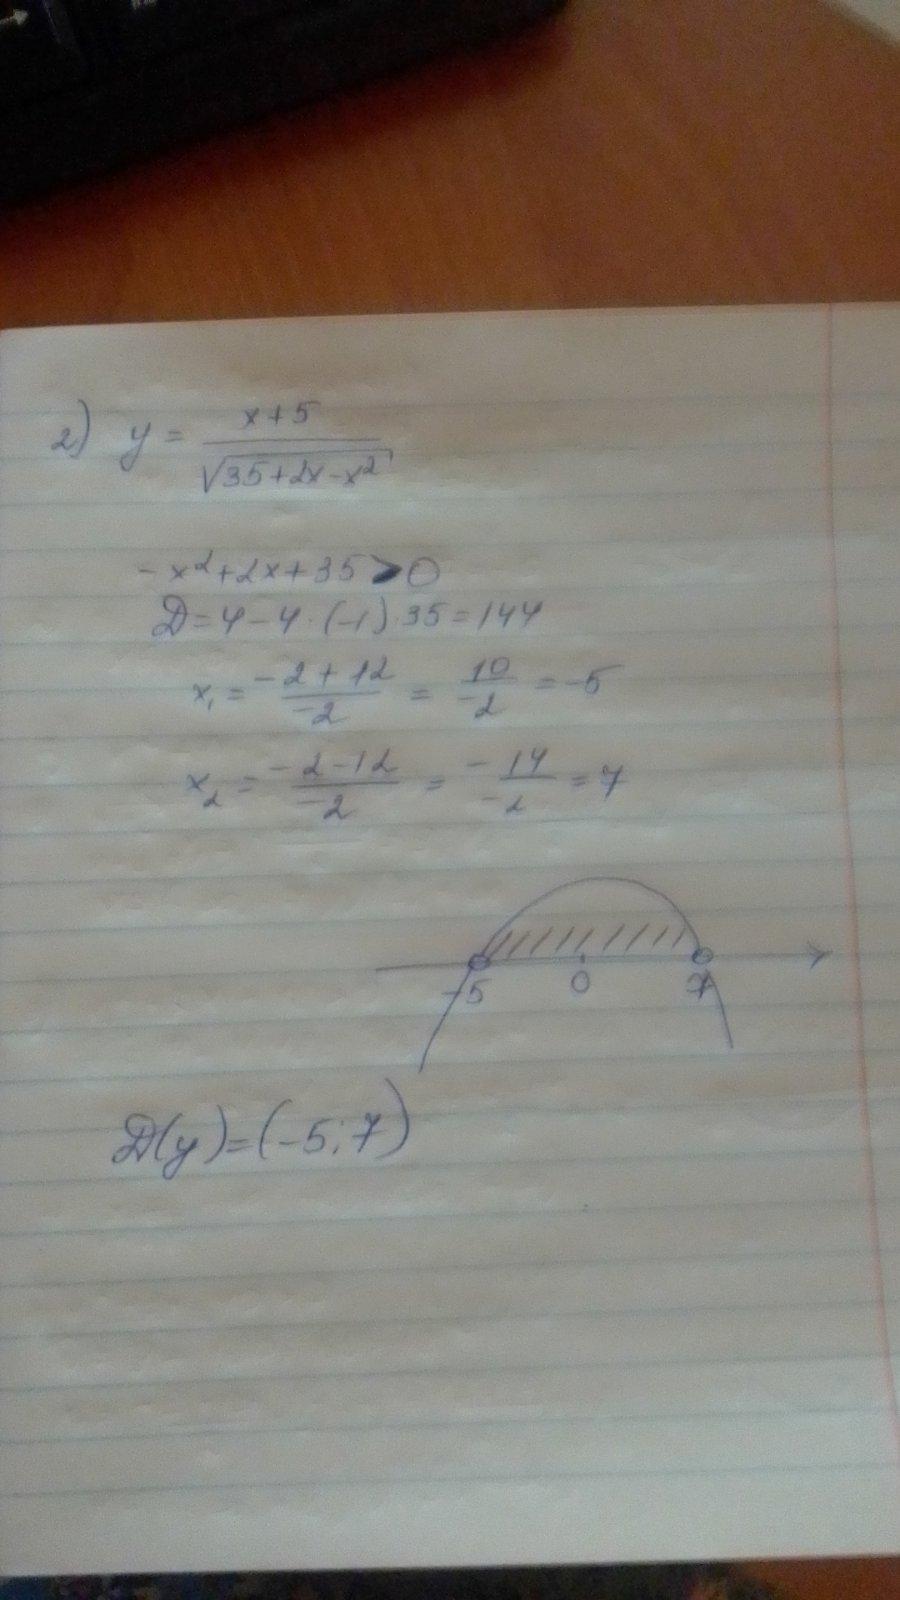 2) y = x+5 / √35+2x-x²
-x²+2x+35>0
D=4-4·(-1)·35=144
x₁ = -2+12 / -2 = 10 / -2 = -5
x₂ = -2-12 / -2 = -14 / -2 = 7
-5 0 7
D(y)=(-5;7)